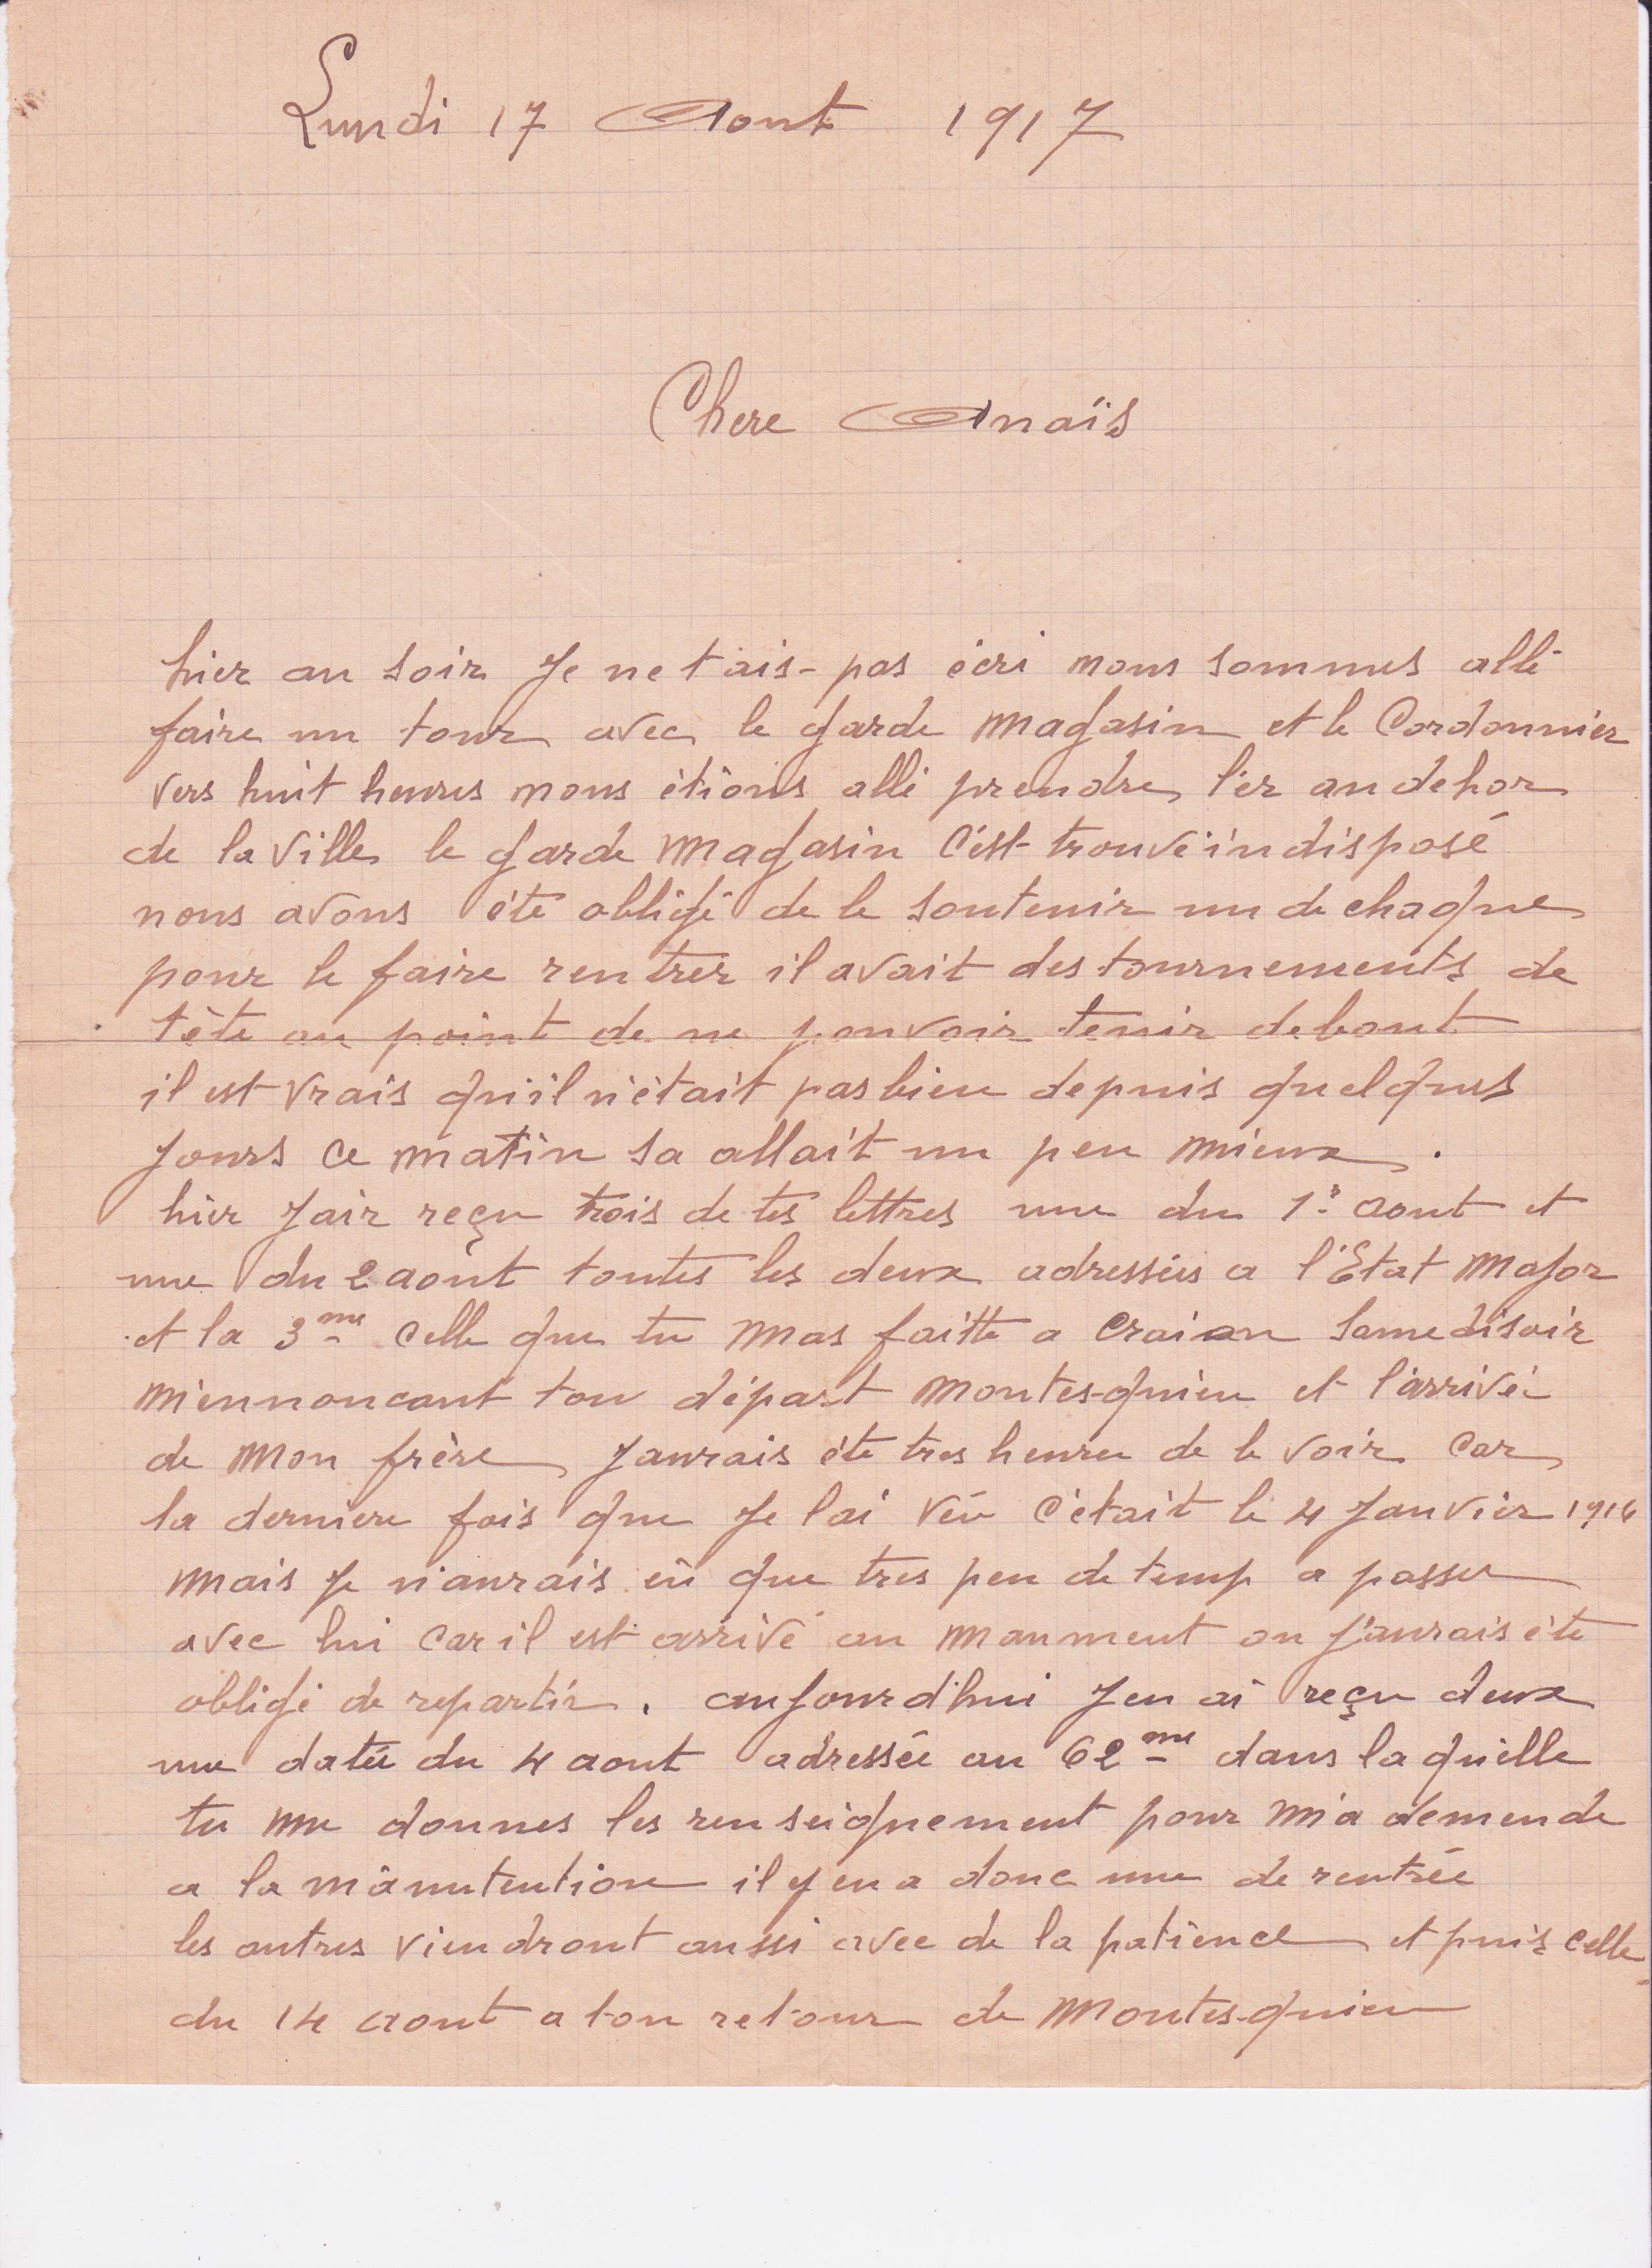 Lundi 17 Aout 1917
Chere Anaïs
hier au soir Je ne tais-pas écri nous sommes allé
faire un tour avec le garde magasin et le Cordonnier
vers huit heures nous étions allé prendre l'ér au dehor
de la ville le garde magasin c'est trouvé indisposé
nous avons été obligé de le soutenir un de chaque
pour le faire rentrer il avait des tournements de
tête au point de ne pouvoir tenir debout
il est vrais qu'il n'était pas bien depuis quelques
jours ce matin sa allait un peu mieux .
hier J'air reçu trois de tes lettres une du 1r aout et
une du 2 aout toutes les deux adressées a l'Etat Major
et la 3me celle que tu mas faitte a craion samedi soir
m'ennoncant ton départ Montes-quieu et l'arrivé
de mon frère Jaurais été tres heureu de le voir car
la derniere fois que Je lai véu c'était le 4 Janvier 1916
mais Je n'aurais eù que tres peu de temp a passer
avec lui car il est arrivé au maument ou j'aurais été
obligé de repartir . aujourd'hui J'en ai reçu deux
une datée du 4 aout adressée au 62me dans laquélle
tu me donnes les renseignement pour m'a demende
a la manutention il y en a donc une de rentrée
les autres viendront aussi avec de la patience et puis celle
du 14 aout a ton retour de Montes-quieu